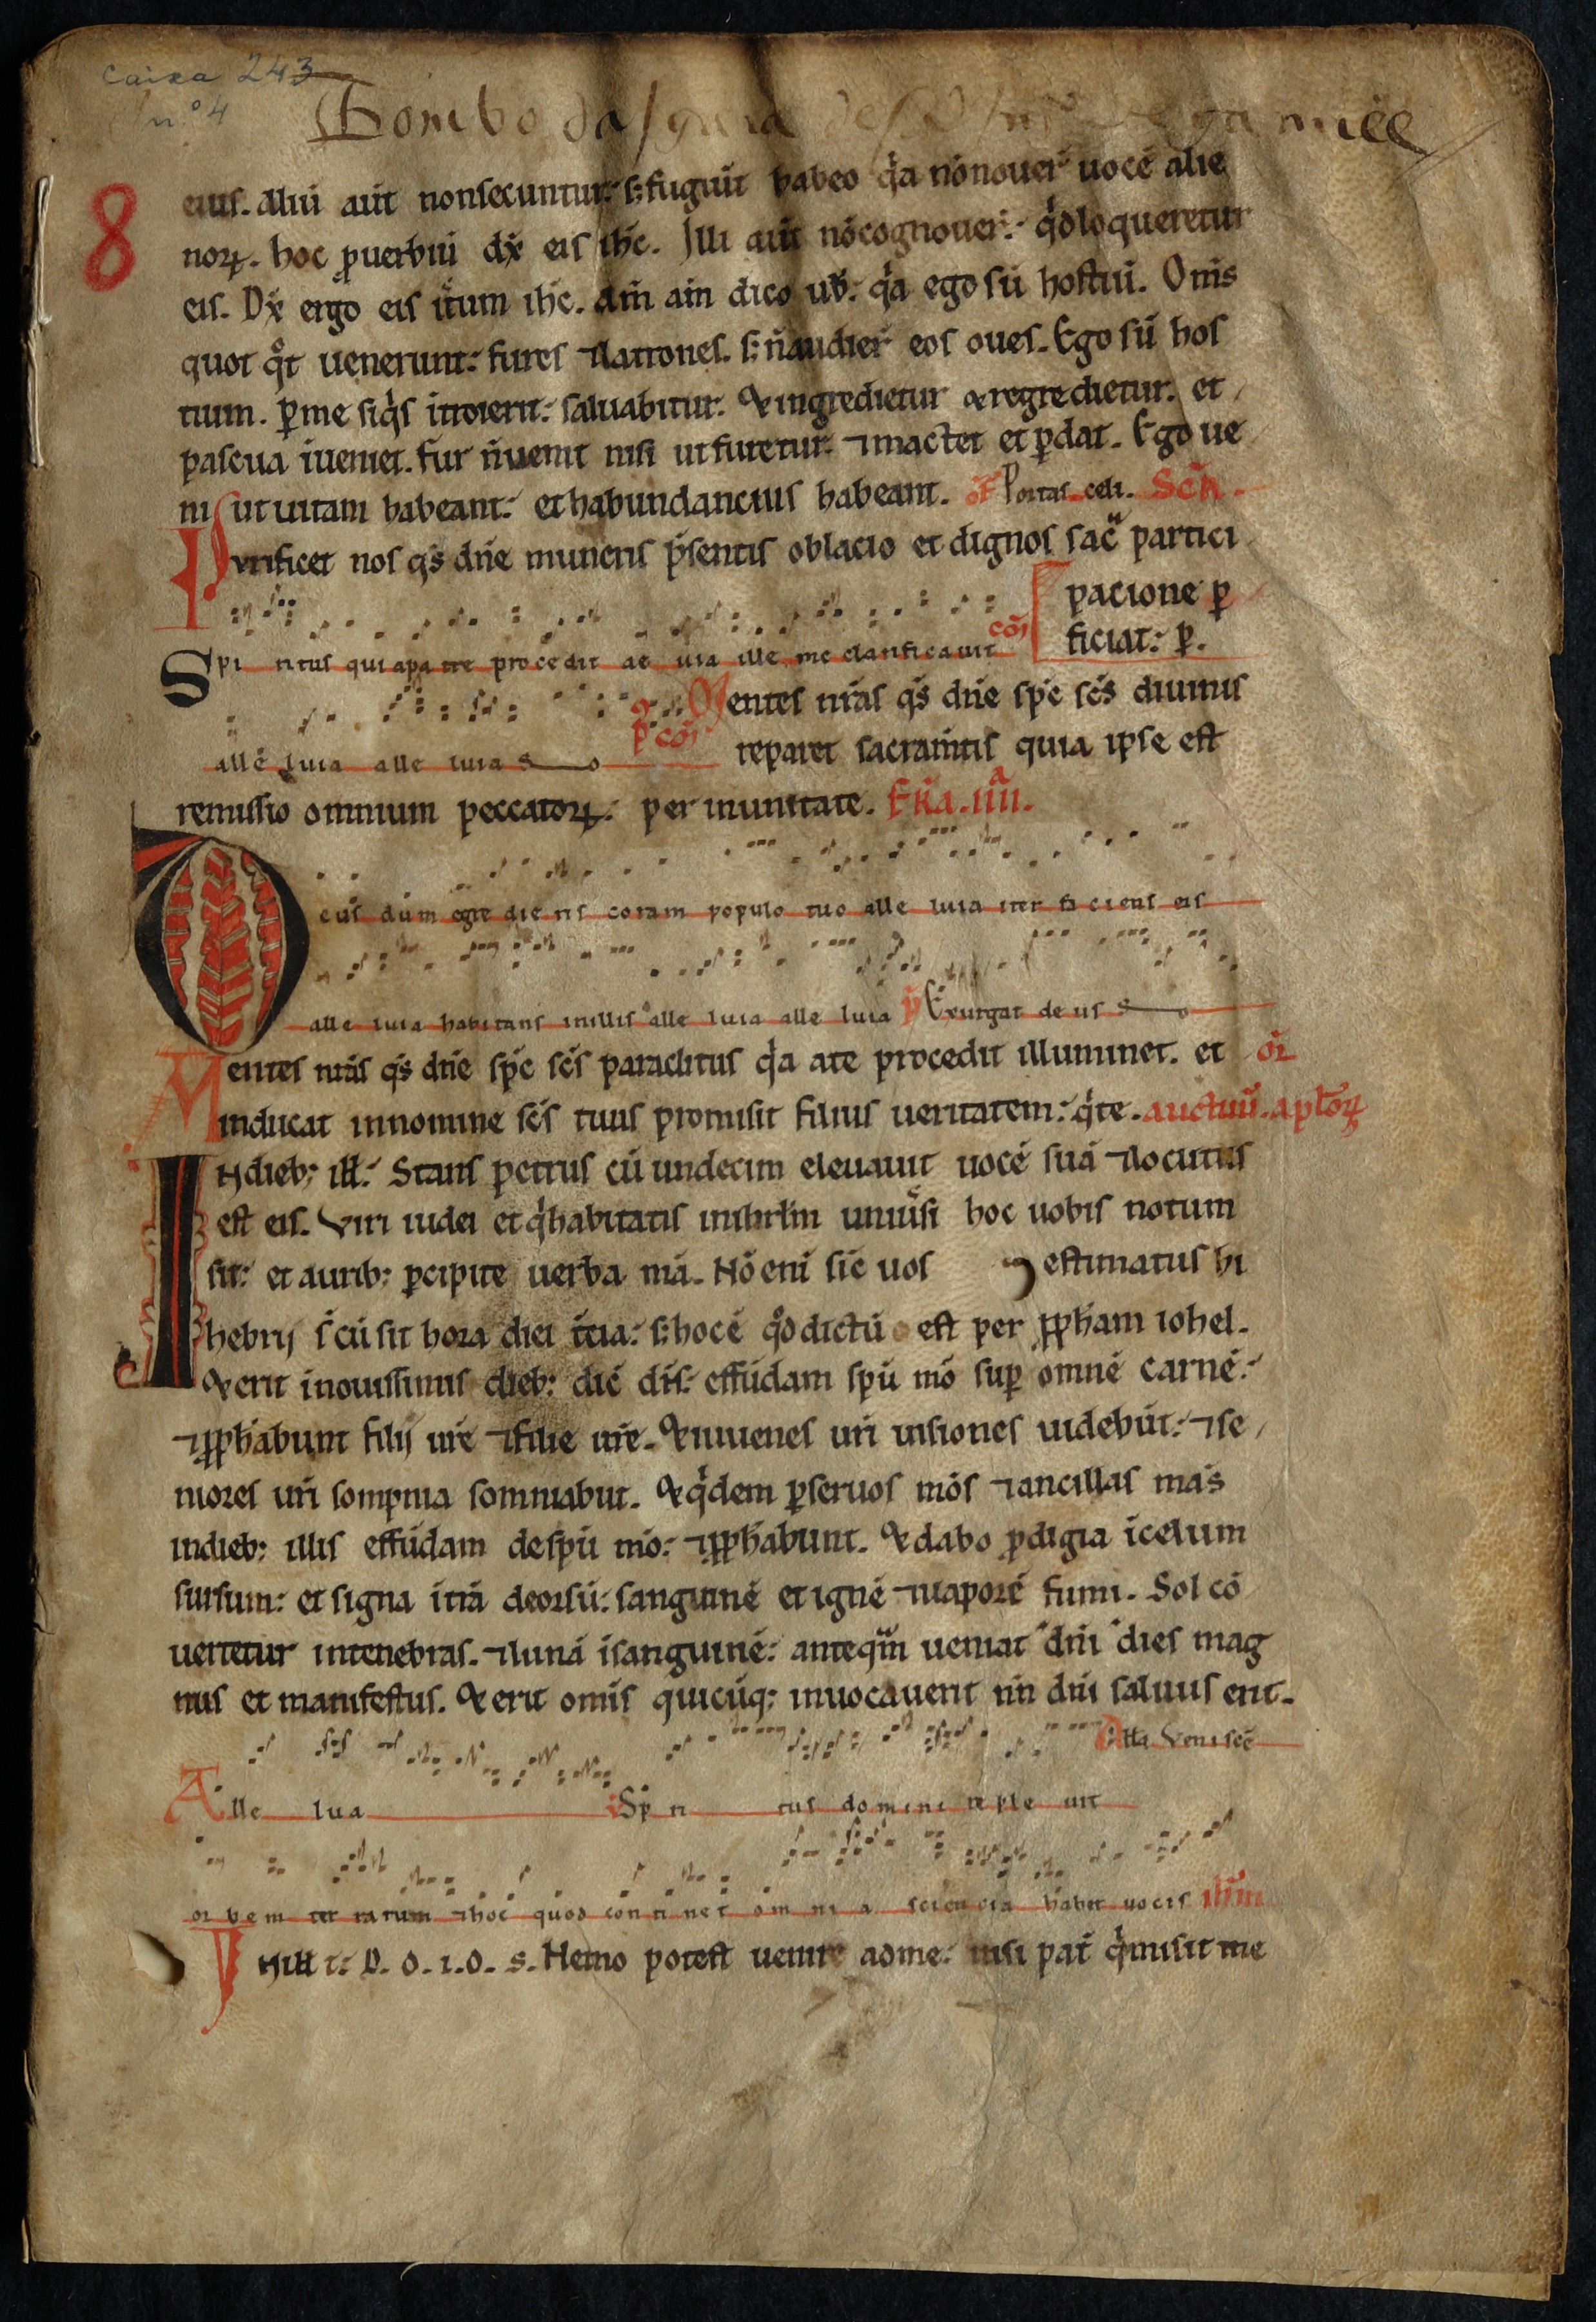 caixa 243
n.º 4
Tombo da
8
eius. Aliū aūt non secuntur: s; fugiūt habeo q̇a nō nouer̄ uocē alie
noꝝ. hoc ꝓuerbiū dx̄ eis ih̄c. Illi aūt nō cognouer̄: qḋ loqueretur
eis. Dx̄ ergo eis it̄um ih̄c. am̄ am̄ dico ub̄: q̇a ego sū hostiū. Om̄s
quot qͦt uenerunt: fures ⁊ latrones. s; n̄ audier̄ eos oues. Ego sū hos
tium. ꝑ me siq̇s introierit: saluabitur. & ingredietur & regredietur. et
pascua īueniet. Fur n̄ uenit nisi ut furetur. ⁊ mactet et ꝑdat. Ego ue
ni ut uitam habeant: et habundancius habeant. of̄ Portas celi. Scr̄.
Purificet nos qs̄ dn̄e muneris p̄sentis oblacio et dignos sac̄ partici
pacione ꝑ
ficiat: ꝑ.
Spi ritus qui a pa tre procedit al le luia ille me clarificauit cōi
alle luia alle luia
Mentes nr̄as qs̄ dn̄e sp̄c sc̄s diuinis
p̄ cōi
reparet sacram̄tis quia ipse est
remissio omnium peccatoꝝ: per in unitate. Fr̄a. iiii.ᵃ
Deus dum egre die ris coram populo tuo alle luia iter fa ciens eis
alle luia habitans in illis alle luia alle luia p̄ Exurgat de us
Mentes nr̄as qs̄ dn̄e sp̄c sc̄s paraclitus q̇a a te procedit illuminet. et or̄
inducat in nomine sc̄s tuus promisit filius ueritatem: q̇ te. auctuū. aplōꝝ
In dieb; ill̄: Stans petrus cū undecim eleuauit uocē suā ⁊ locutus
est eis. Viri iudei et q̇ habitatis in ihrl̄m uniūsi hoc uobis notum
sit: et aurib; ꝑcipite uerba mā. Nō eni sic uos estimatus hi
hebrij s̄ cū sit hora diei t̄cia: s; hoc ē qͦd dictū est per ꝓph̄am iohel.
& erit ī nouissimis dieb; dic̄ dn̄s: effūdam spū mō suꝑ omnē carnē:
⁊ ꝓph̄abunt filij ur̄e ⁊ filie ur̄e. & iuuenes ur̄i uisiones uidebūt: ⁊ se
niores ur̄i sompnia somniabūt. & q̇dem ꝑ seruos mōs ⁊ ancillas mās
in dieb; illis effūdam de spū mō: ⁊ ꝓph̄abunt. & dabo ꝓdigia ī celum
sursum: et signa ī t̄rā deorsū: sanguinē et ignē ⁊ uaporē fumi. Sol cō
uertetur in tenebras. ⁊ lunā ī sanguinē: anteqm̄ ueniat dn̄i dies mag
nus et manifestus. & erit omīs quicūq; inuocauerit nn̄ dn̄i saluus erit.
All̄a Veni sc̄e
Alle lua Sp ri tus domini reple uit
or bem ter rarum ⁊ hoc quod con ti net om ni a sciencia habet uocis ih̄m
In ill̄ t: D. o. i. o. s. Nemo potest uenire ad me: nisi pat̄ q̇ misit me